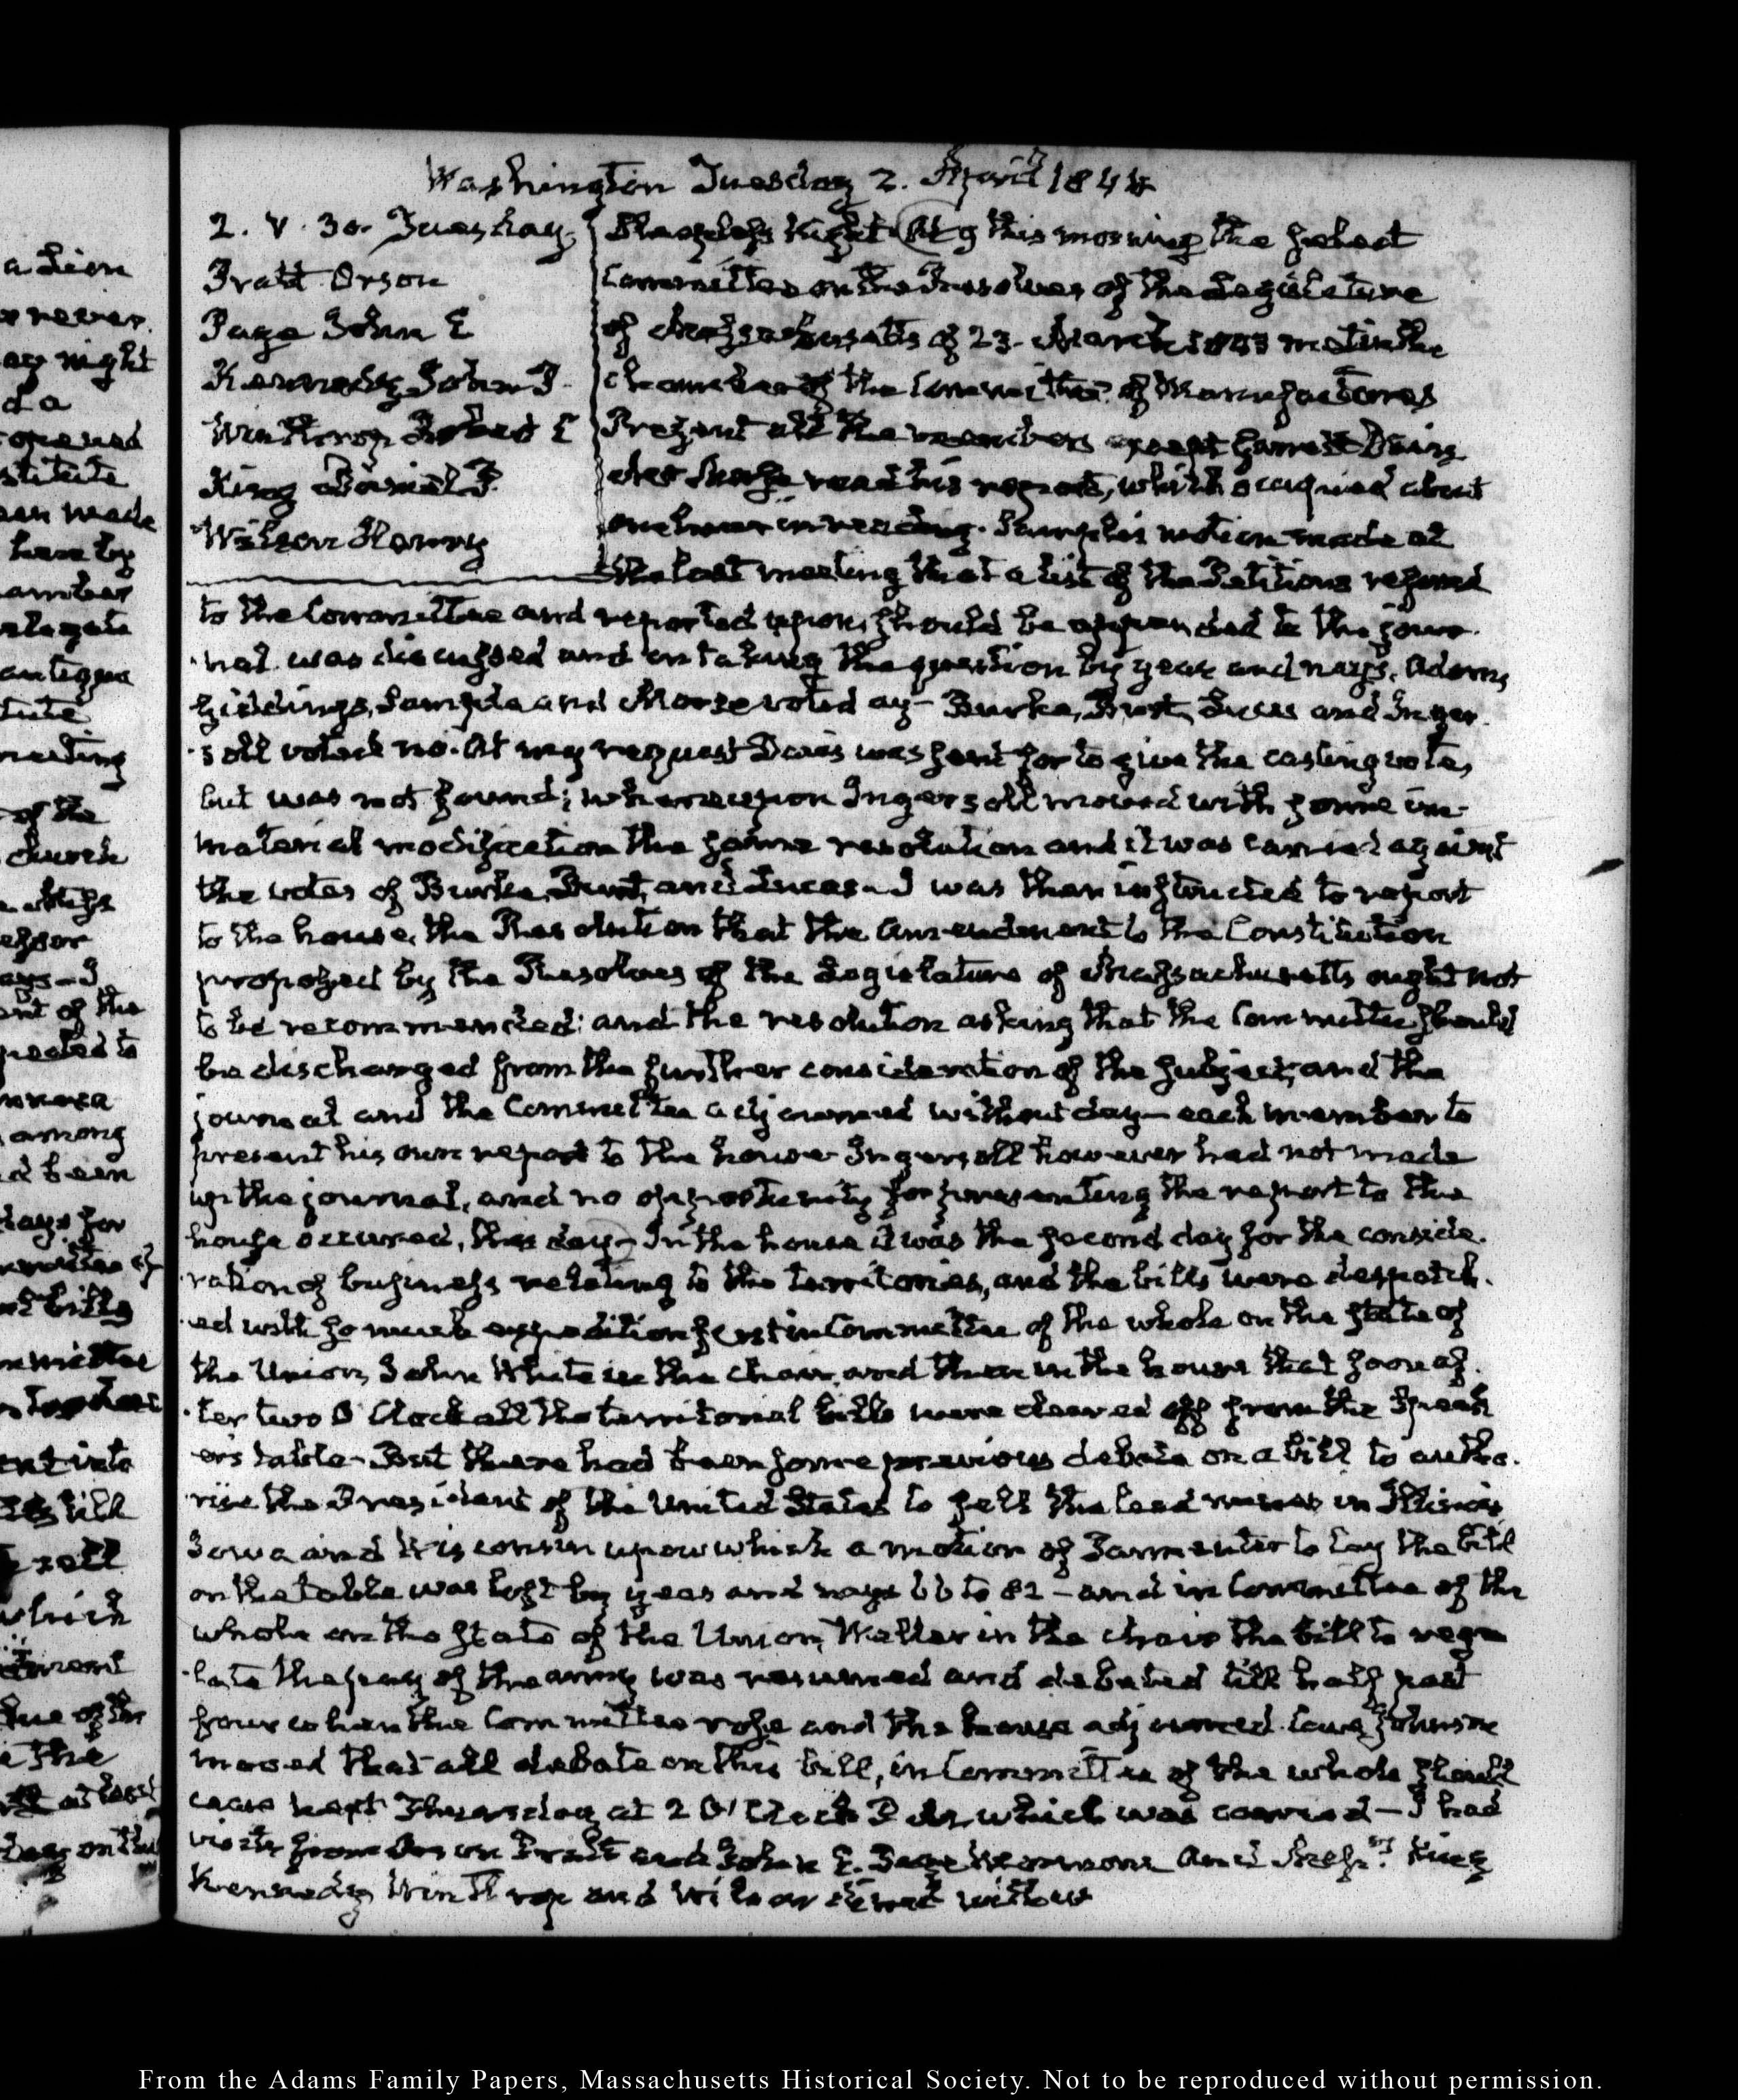 Washington Tuesday 2. April 1844
2. V. 30. Tuesday.
Pratt Orson
Page John E
Kennedy John P.
Winthrop Robert C
King Daniel P.
Wilson Henry
Sleepless Night. At 9 this morning the select
Committee on the Resolves of the Legislature
of Massachusetts of 23. March 1843 met in the
chamber of the Committee of Manufactures
Present all the members except Garrett Davis
Mr Morse read his report, which occupied about
one hour in reading. Sample's motion made at
the last meeting that a list of the Petitions referred
to the Committee and reported upon, should be appended to the jour-
nal was discussed and on taking the question by yeas and nays. Adams,
Giddings, Sample and Morse voted ay— Burke, Burt, Lucas and Inger-
soll voted no. At my request Davis was sent for to give the casting vote,
but was not found; whereupon Ingersoll moved with some im-
material modification the same resolution and it was carried against
the votes of Burke, Burt, and Lucas— I was then instructed to report
to the house, the Resolution that the amendment to the Constitution
proposed by the Resolves of the Legislature of Massachusetts ought not
to be recommended; and the resolution asking that the Committee should
be discharged from the further consideration of the subject; and the
journal and the Committee adjourned without day— each member to
present his own report to the house— Ingersoll however had not made
up the journal, and no opportunity for presenting the report to the
house occurred, this day— In the house it was the second day for the conside-
ration of business relating to the territories, and the bills were despatch-
ed with so much expedition first in Committee of the whole on the state of
the Union, John White in the chair, and then in the house that soon af-
ter two O'Clock all the territorial bills were cleared off from the Speak-
er's table— But there had been some previous debate on a bill to autho-
rise the President of the United States to sell the lead mines in Illinois
Iowa and Wisconsin upon which a motion of Parmenter to lay the bill
on the table was lost by yeas and nays 66 to 82 — and in Committee of the
whole on the state of the Union, Weller in the chair the bill to regu-
late the pay of the army was resumed and debated till half past
four when the Committee rose and the house adjourned. Cave Johnson
moved that all debate on this bill, in Committee of the whole should
cease next Thursday at 2 O'Clock P.M. which was carried— I had
visits from Orson Pratt and John E. Page Mormons and Messrs. King
Kennedy Winthrop and Wilson